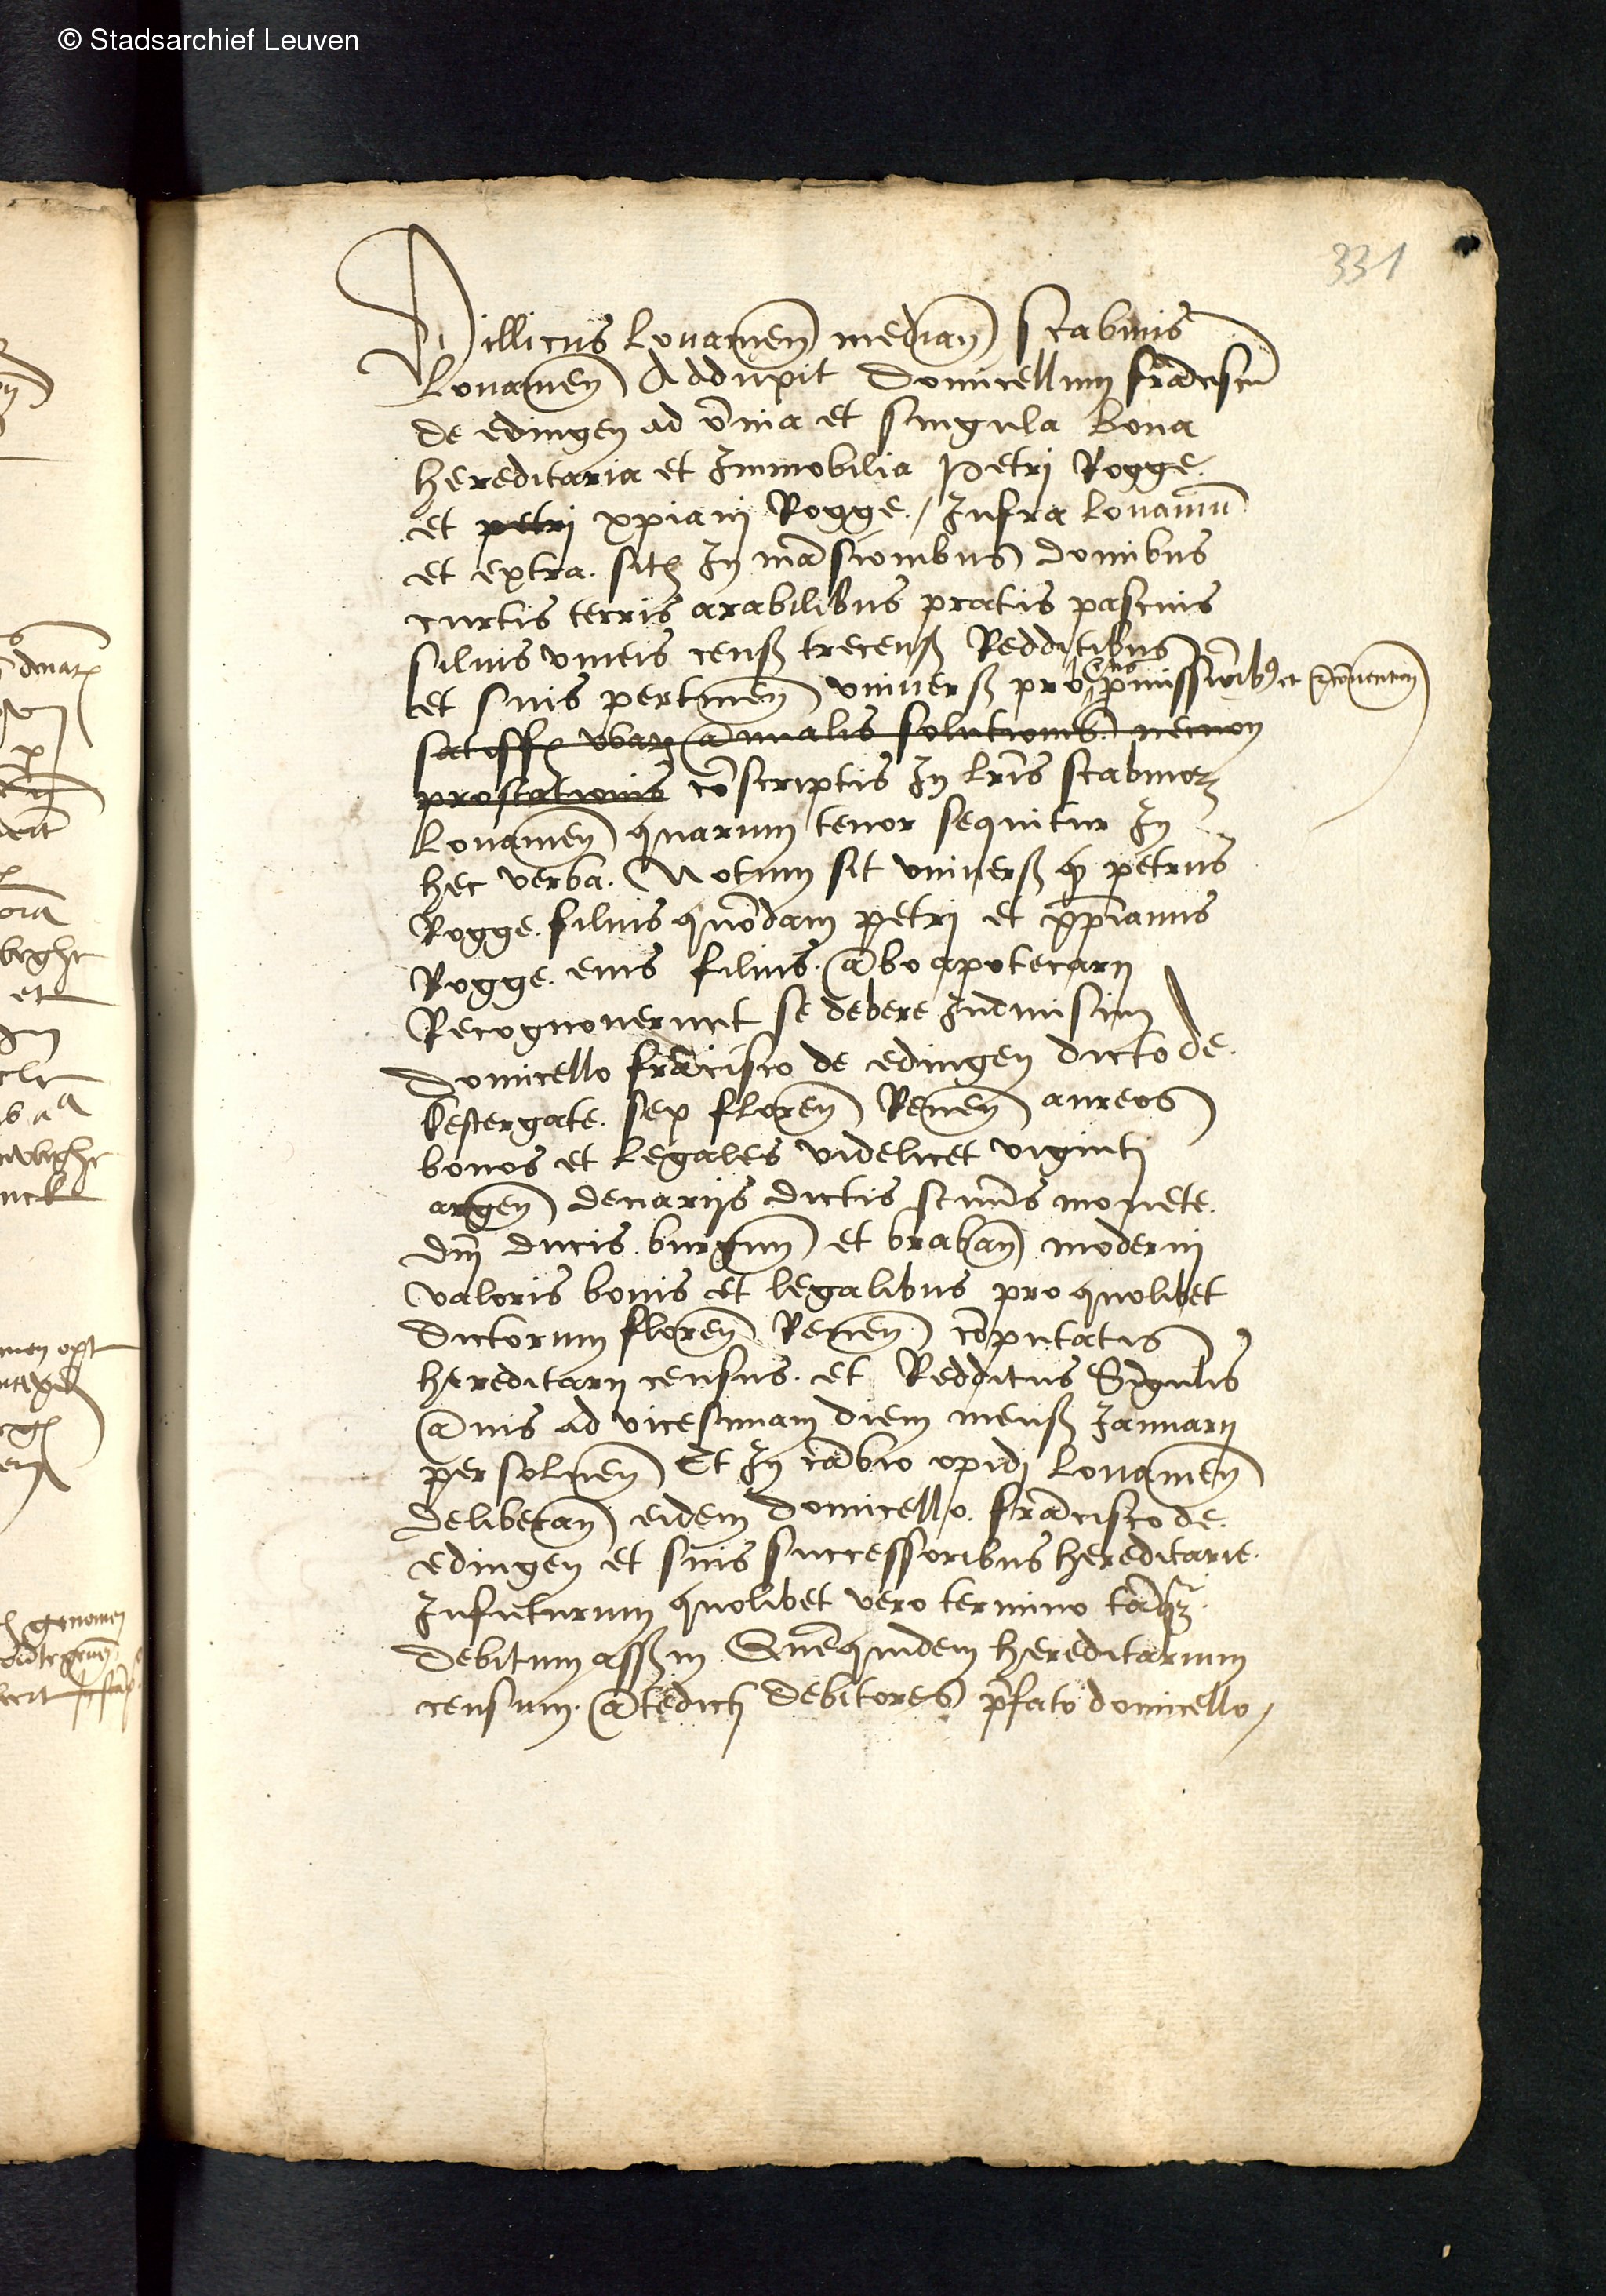 © Stadsarchief Leuven
331
Villicus lovanien̄ median̄ scabinis
Lovanien̄ Adduxit domicellum frāciscū
de edingen ad om̄ia et singula bona
hereditaria et Immobilia Petri Rogge
et petri xp̄iani Rogge / Infra lovaniū
et extra sitis In māsionibus domibus
curtis terris arabilibus pratis pascuis
silvis vineis cens trecens Redditibus
et suis pertinen̄ univers pro p̄missionibꝫ et convention̄
satisff annualis solutionis necnon
prostationis cōscriptis In lr̄is scabinoꝝ
Lovanien̄ quarum tenor sequitur In
hec verba. Notum sit univers qꝫ petrus
Rogge filius quōdam petri et xp̄ianus
Rogge eius filius ambo apotecarij
Recognoverunt se debere Indivisim
domicello frācisco de edingen dicto de
kestergate sex floren̄ Renen̄ aureos
bonos et legales videlicet viginti
argen̄ denarijs dictis stuvers monete
dn̄i ducis burgun̄ et braban̄ moderni
valoris bonis et legalibus pro quolibet
dictorum floren̄ Renen̄ cōputatis
hereditarij census et Redditus Singulis
annis ad vicesimam diem mens Januarij
persolven̄ Et In cābio opidi lovanien̄
deliberan̄ eidem domicello frācisco de
edingen et suis successoribus hereditarie
Infuturum quolibet vero termino tāqꝫ
debitum assm̄ Quēquidem hereditarium
censum antedicti debitores p̄fato domicello